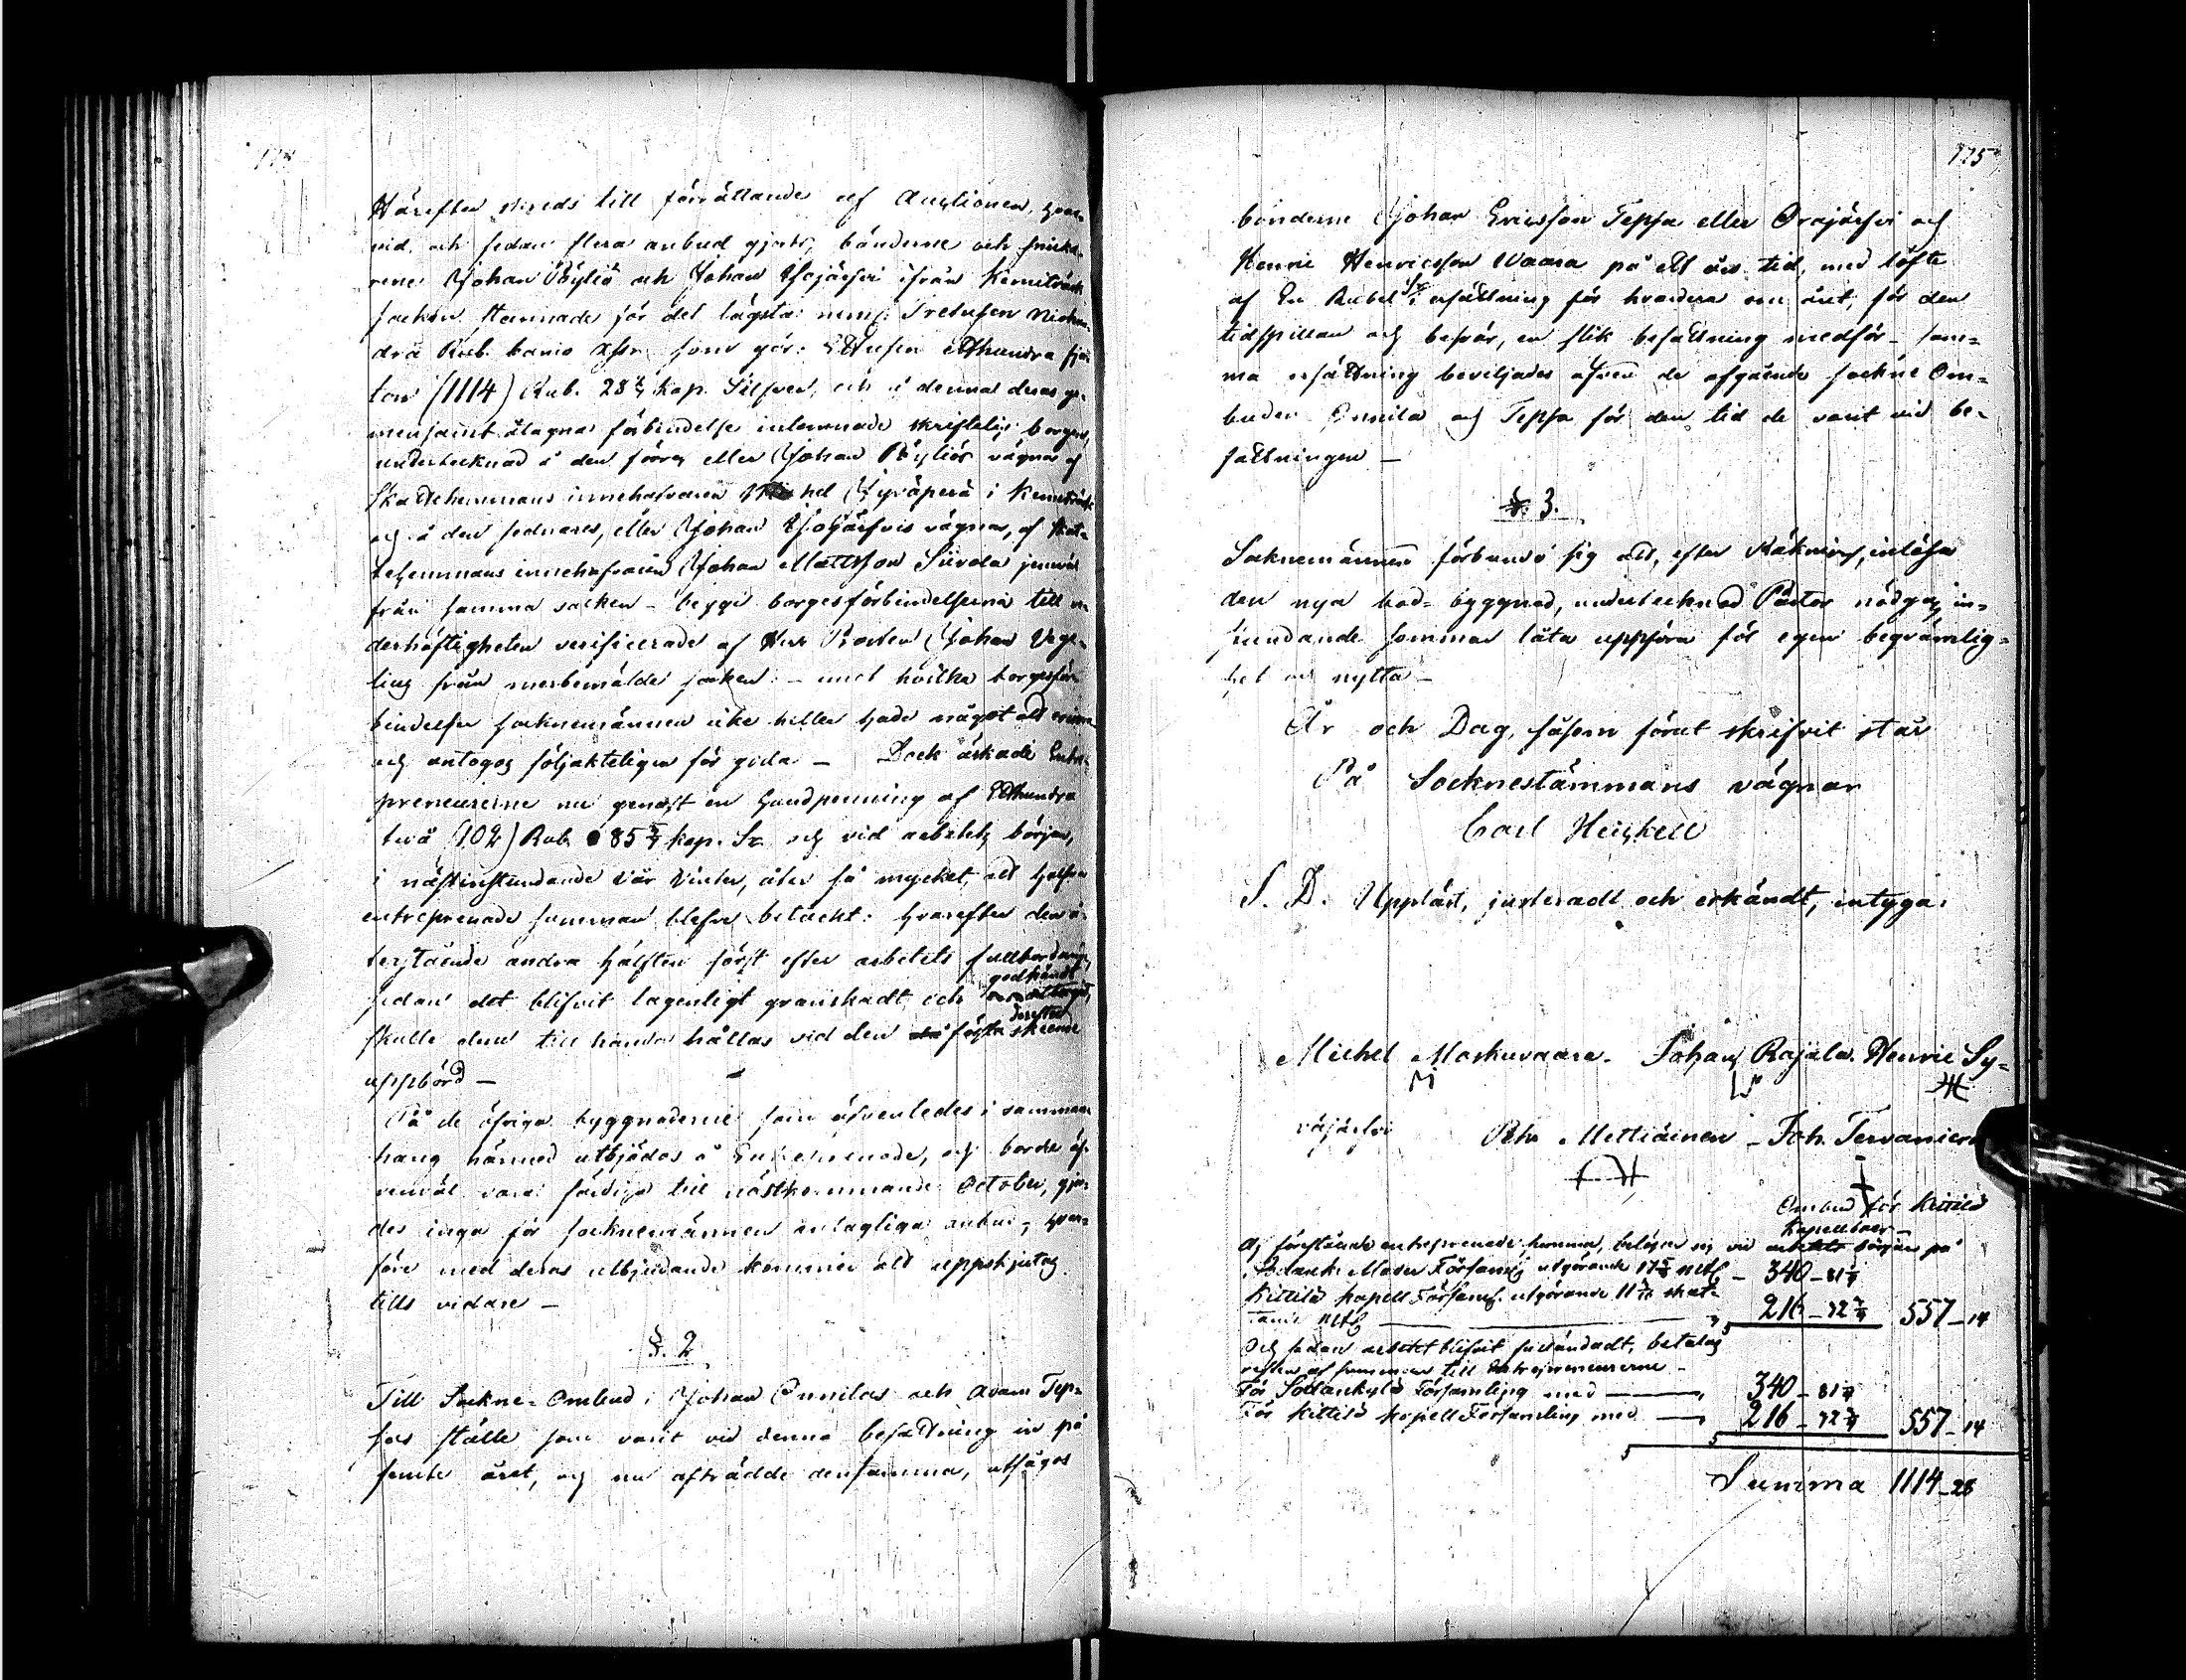 174
Härefter skreds till förrättande af Auctionen, hvar-
vid, och sedan flera anbud gjorts, bönderne och snicka-
rene Johan Pöyliö och Johan Isojärfvi ifrån Kemiträsk
socken stannade för det lägsta neml. Tretusen niohun-
dra Rub. banco Assr. som gör: Ettusen etthundra fjor-
ton (1114) Rub. 28 4/7 kop. Silfver, och å denna deras ge-
mensamt åtagna förbindelse inlemnade skriftelig borgen,
undertecknad å den förres eller Johan Pöyliös vägnar af
Skattehemmans innehafvaren Michel Jyväperä i Kemiträsk
och å den sednares, eller Johan Isojärfvis vägnar, af Skat-
tehemmans innehafvaren Johan Mattsson Siivola jemväl
från samma socken – begge borgesförbindelserna till ve-
derhäftigheten verificerade af Herr Probsten Johan Wege-
lius från merbemälde socken: – mot hvilka borgesför-
bindelser socknemännen icke heller hade något att erinra
och antogos följakteligen för goda – Dock äskade Entre-
preneurerne nu genast en handpenning af Etthundra
två (102) Rub. 85 5/7 kop. Sr. och vid arbetets början,
i nästinstundande vår vinter, åter så mycket, att halfva
entreprenade summan blefve betäckt: hvarefter den å-
terstående andra hälften först efter arbetets fullbordan,
godkändt
sedan det blifvit lagenligt granskadt och
derefter
skulle dem till handa hållas vid den första skeende
uppbörd –
På de öfriga byggnaderne som äfvenledes i samman-
hang härmed utbjödos å Entreprenade, och borde äf-
venväl vara färdiga till nästkommande October, gjor-
des inga för socknemännen antagliga anbud, hvar-
före med deras utbjudande kommer att uppskjutas
tills vidare –
§. 2
Till Sockne-Ombud i Johan Onnilas och Adam Tep-
sas ställe som varit vid denna befattning in på
femte året, och nu afträdde densamma, utsågos
175
bönderne Johan Ericsson Tepsa eller Orajärfvi och
Henric Henricsson Waara på ett års tid, med löfte
af En Rubel Sr. i ersättning för hvardera om året, för den
tidspillan och besvär, en slik befattning medför – sam-
ma ersättning beviljades äfven de afgående sockne Om-
buden Onnila och Tepsa för den tid de varit vid be-
fattningen –
§ 3.
Socknemännen förbundo sig att, efter Räkning, inlösa
den nya bod-byggnad, undertecknad Pastor nödgas in-
stundande sommar låta uppföra för egen beqvämlig-
het och nytta –
År och Dag, såsom förut skrifvit står
På Socknestämmans vägnar
Carl Heickell
S. D. Uppläst, justeradt och erkändt, intyga:
Michel Moskuvaara. Johan Rajala. Henric Sy-
väjärfvi Pehr Mettiäinen – Joh. Tervaniemi
Ombud för Kittilä
Kapellboer –
Af förestående entreprenade summa, belöper sig vid arbetets början på
Sodank. Moder Församlg utgörande 17 5/8 mtl – 340 – 81 1/7
Kittilä Kapell Församl. utgörande 11 skat-
tande mtl – 216 – 32 6/7 557 – 14
Och sedan arbetet blifvit fulländadt, betalas
resten af summan till Entrepreneurerne –
För Sodankylä Församling med – 340 – 81 1/7
För Kittilä Kapell Församling med – 216 – 32 6/7 557 – 14
Summa 1114 – 28